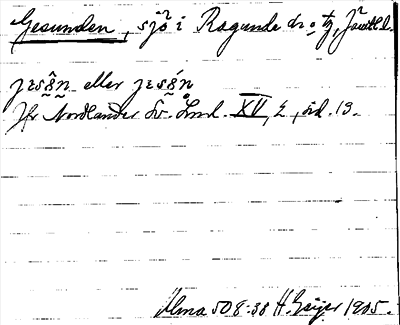 Gesunden, sjö i Ragunda sn o tg, Jämtl.l.
jesån eller jesǻn
Jfr Nordlander Sv. Lml. XV, 2, sid. 13.
Alma 508:38 H. Geijer 1905.